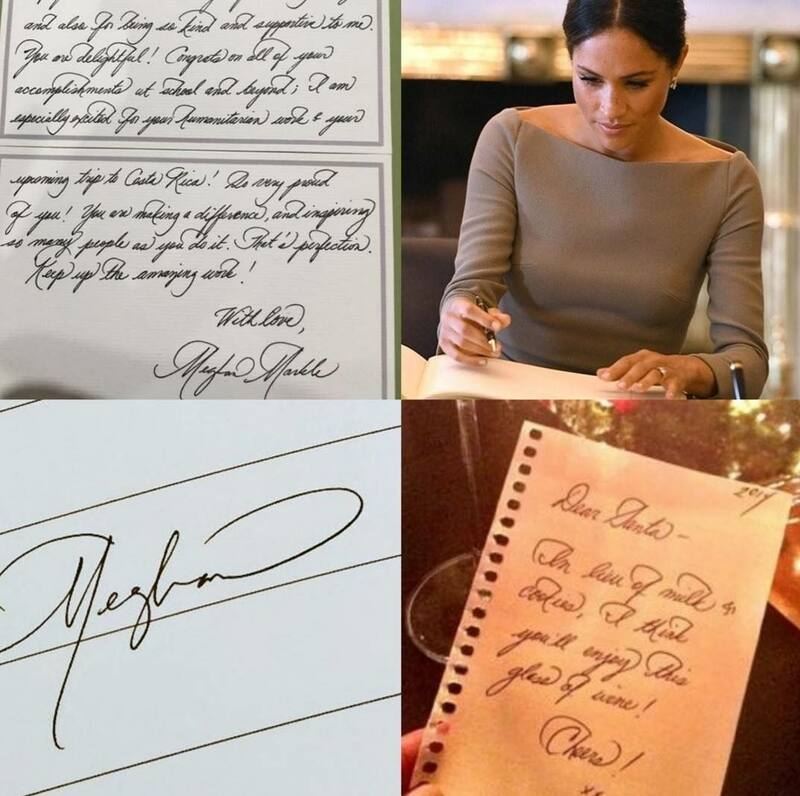 and also for being so kind and supportive to me.
You are delightful! Congrats on all of your
accomplishments at school and beyond; I am
especially excited for your humanitarian work & your
upcoming trip to Costa Rica! So very proud
of you! You are making a difference, and inspiring
so many people as you do it. That's perfection.
Keep up the amazing work!
With love,
Meghan Markle
Meghan
2014
Dear Santa -
In lieu of milk &
cookies, I think
you'll enjoy this
glass of wine!
Cheers!